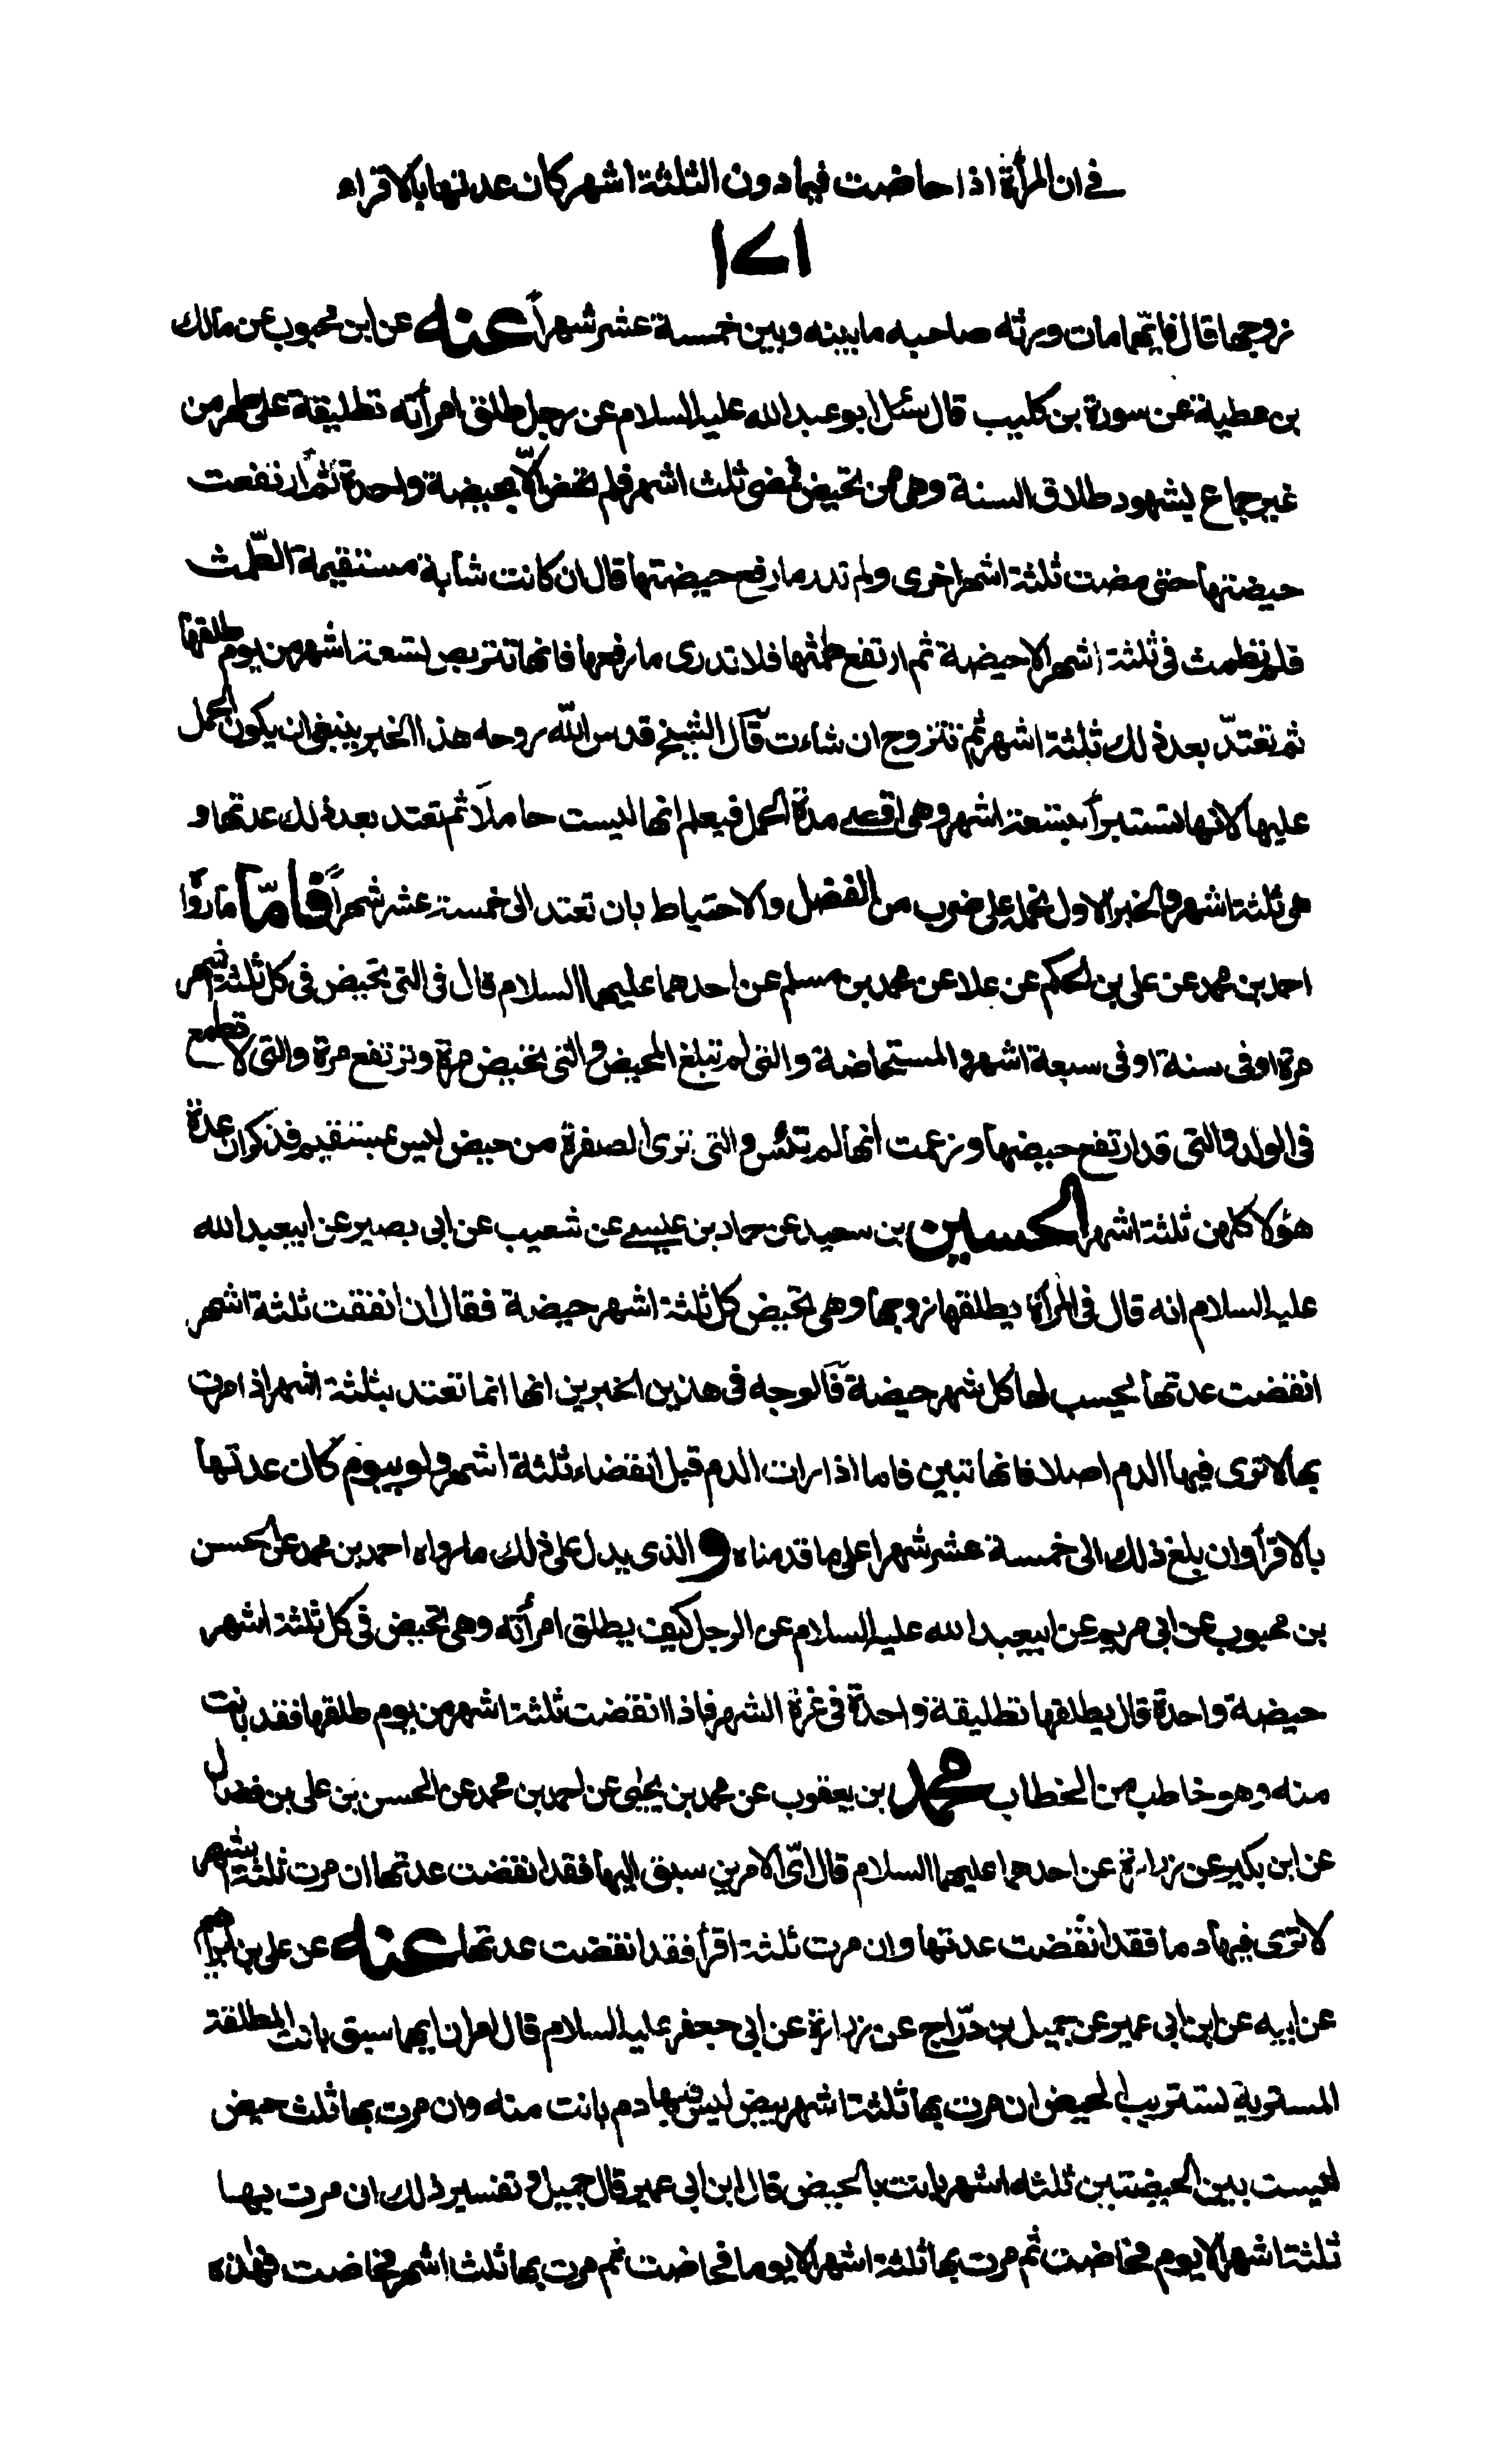 في ان المرأة اذا حاضت فيما دون الثلثة اشهر كان عدتها بالاقراء
١٤١
زوجها قال فايّهما مات ورثه صاحبه ما بينه وبين خمسة عشر شهراً عنه عن ابن محبوب عن مالك
بن عطية عن سورة بن كليب قال سئل ابو عبد الله عليه السلام عن رجل طلق امرأته تطليقة على طهر من
غير جماع بشهود طلاق السنة وهي ممن تحيض فمضى ثلث اشهر فلم تحض الّا بحيضة واحدة ثم ارتفعت
حيضتها حتى مضت ثلثة اشهر اخرى ولم تدر ما رفع حيضتها قال ان كانت شابة مستقيمة الطّمث
فلم تطمث في ثلثة اشهر الا حيضة ثم ارتفع طمثها فلا تدرى ما رفعها فانها تتربص تسعة اشهر من يوم طلقها
ثم تعتدّ بعد ذلك ثلثة اشهر ثم تتزوج ان شاءت قال الشيخ قدس اللّه روحه هذا الخبر ينبغي ان يكون العمل
عليها لانها تستبرأ بتسعة اشهر وهي اقصى مدة الحمل فيعلم انها ليست حاملا ثم تعتد بعد ذلك عدتها و
هى ثلثة اشهر والخبر الاول نحمله على ضرب من الفضل والاحتياط بان تعتد الى خمسة عشر شهراً فامّا ما رواه
احمد بن محمد عن على بن الحكم عن علا عن محمد بن مسلم عن احدهما عليهما السلام قال في التي تحيض في كل ثلثة اشهر
مرة او في سنة او في سبعة اشهر والمستحاضة والتي لم تبلغ المحيض والتي تحيض مرة وترتفع مرة والتي لا تطمع
في الولد والتي قد ارتفع حيضها وزعمت انها لم تيئس والتي ترى الصفرة من حيض ليس بمستقيم فذكر ان عدة
هؤلا كلهن ثلثة اشهر الحسين بن سعيد عن حماد بن عيسى عن شعيب عن ابى بصير عن ابيعبد الله
عليه السلام انه قال في المرأة يطلقها زوجها وهي تحيض كل ثلثة اشهر حيضة فقال ان انقضت ثلثة اشهر
انقضت عدتها يحسب لها كل شهر حيضة فالوجه في هذين الخبرين انها انما تعتد بثلثة اشهر اذا مرت
بها لا ترى فيها الدم اصلا فانها تبين فاما اذا رات الدم قبل انقضاء ثلثة اشهر ولو بيوم كان عدتها
بالاقرأ وان بلغ ذلك الى خمسة عشر شهرا على ما قدمناه والذى يدل على ذلك ما رواه احمد بن محمد عن الحسن
بن محبوب عن ابى مريم عن ابيعبد الله عليه السلام عن الرجل كيف يطلق امرأته وهي تحيض في كل ثلثة اشهر
حيضة واحدة قال يطلقها تطليقة واحدة في غرة الشهر فاذا انقضت ثلثة اشهر من يوم طلقها فقد بانت
منه وهو خاطب من الخطاب محمد بن يعقوب عن محمد بن يحيى عن احمد بن محمد عن الحسن بن على بن فضال
عن ابن بكير عن زرارة عن احدهما عليهما السلام قال ايّ الامرين سبق اليها فقد انقضت عدتها ان مرت ثلثة اشهر
لا ترى فيها دما فقد انقضت عدتها وان مرت ثلثة اقرأ فقد انقضت عدتها عنه عن على بن ابراهيم
عن ابيه عن ابن ابى عمير عن جميل بن درّاج عن زرارة عن ابى جعفر عليه السلام قال امران ايهما سبق بانت المطلقة
المسترية تستريب الحيض ان مرت بها ثلثة اشهر بيض ليس فيها دم بانت منه وان مرت بها ثلث حيض
ليست بين الحيضتين ثلثه اشهر بانت بالحيض قال ابن ابى عمير قال جميل وتفسير ذلك ان مرت بها
ثلثة اشهر الا يوم فحاضت ثم مرت بها ثلثة اشهر الا يوما فحاضت ثم مرت بها ثلث اشهر فحاضت فهذه